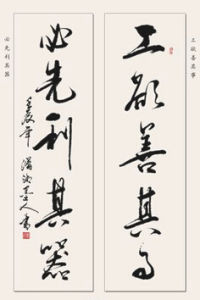 工欲善其事
工欲善其事
必先利其器
壬辰年
必先利其器